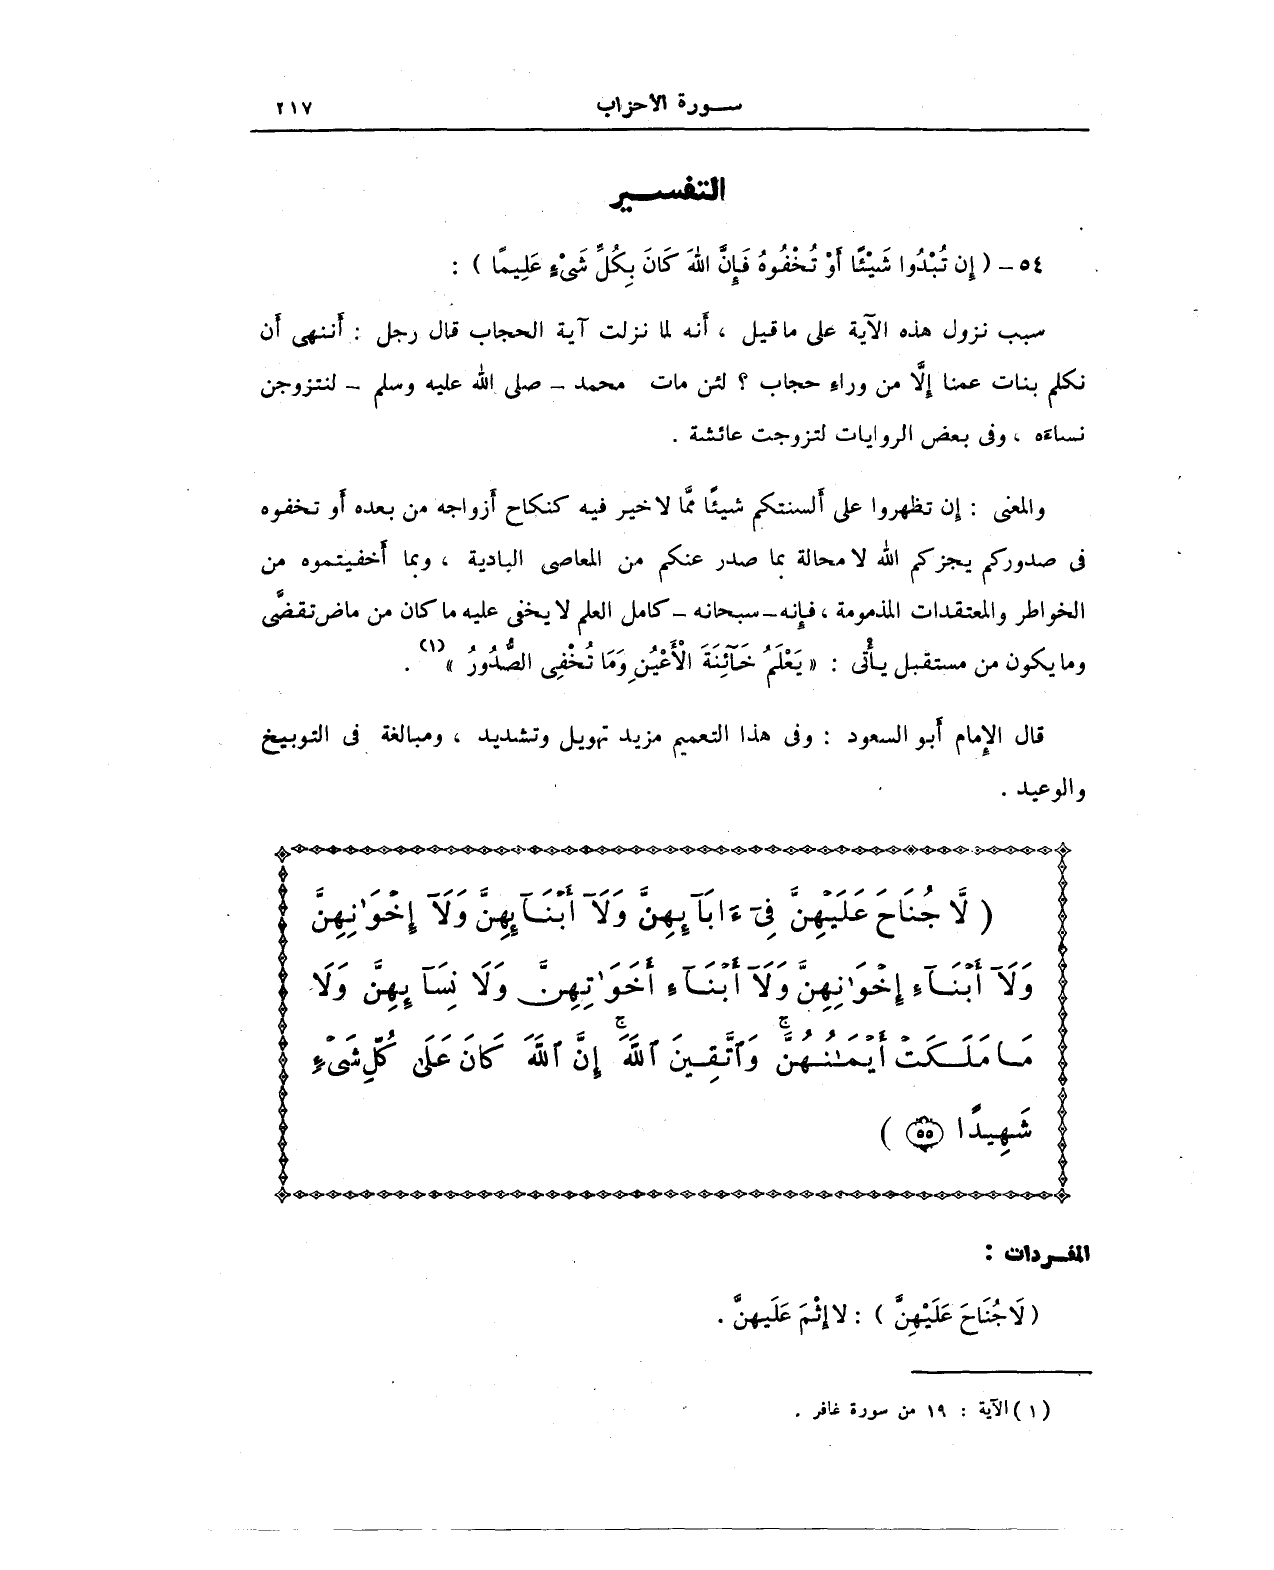 سورة الاحزاب ٢١٧
التفسير
٥٤ – ( إِن تُبْدُوا شَيْئًا أَوْ تُخْفُوهُ فَإِنَّ اللهَ كَانَ بِكُلِّ شَىْءٍ عَلِيمًا ) :
سبب نزول هذه الآية على ماقيل ، أَنه لما نزلت آية الحجاب قال رجل : أَننهى أَن
نكلم بنات عمنا إِلَّا من وراءِ حجاب ؟ لئن مات محمد – صلى الله عليه وسلم – لنتزوجن
نساءَه ، وفى بعض الروايات لتزوجت عائشة .
والمعنى : إِن تظهروا على أَلسنتكم شيئًا ممَّا لاخير فيه كنكاح أَزواجه من بعده أَو تخفوه
فى صدوركم يجزكم الله لا محالة بما صدر عنكم من المعاصى البادية ، وبما أَخفيتموه من
الخواطر والمعتقدات المذمومة ، فإِنه – سبحانه – كامل العلم لايخفى عليه ما كان من ماض تقضَّى
وما يكون من مستقبل يأْتى : « يَعْلَمُ خَآئِنَةَ الْأَعْيُنِ وَمَا تُخْفِى الصُّدُورُ » (١) .
قال الإِمام أَبو السعود : وفى هذا التعميم مزيد تهويل وتشديد ، ومبالغة فى التوبيخ
والوعيد .
( لَّا جُنَاحَ عَلَيْهِنَّ فِىٓ ءَابَآئِهِنَّ وَلَآ أَبْنَآئِهِنَّ وَلَآ إِخْوَٰنِهِنَّ
وَلَآ أَبْنَآءِ إِخْوَٰنِهِنَّ وَلَآ أَبْنَآءِ أَخَوَٰتِهِنَّ وَلَا نِسَآئِهِنَّ وَلَا
مَا مَلَكَتْ أَيْمَٰنُهُنَّ ۗ وَٱتَّقِينَ ٱللَّهَ ۚ إِنَّ ٱللَّهَ كَانَ عَلَىٰ كُلِّ شَىْءٍ
شَهِيدًا ٥٥ )
المفردات :
( لَاجُنَاحَ عَلَيْهِنَّ ) : لا إِثْمَ عَلَيهنَّ .
(١) الآية : ١٩ من سورة غافر .